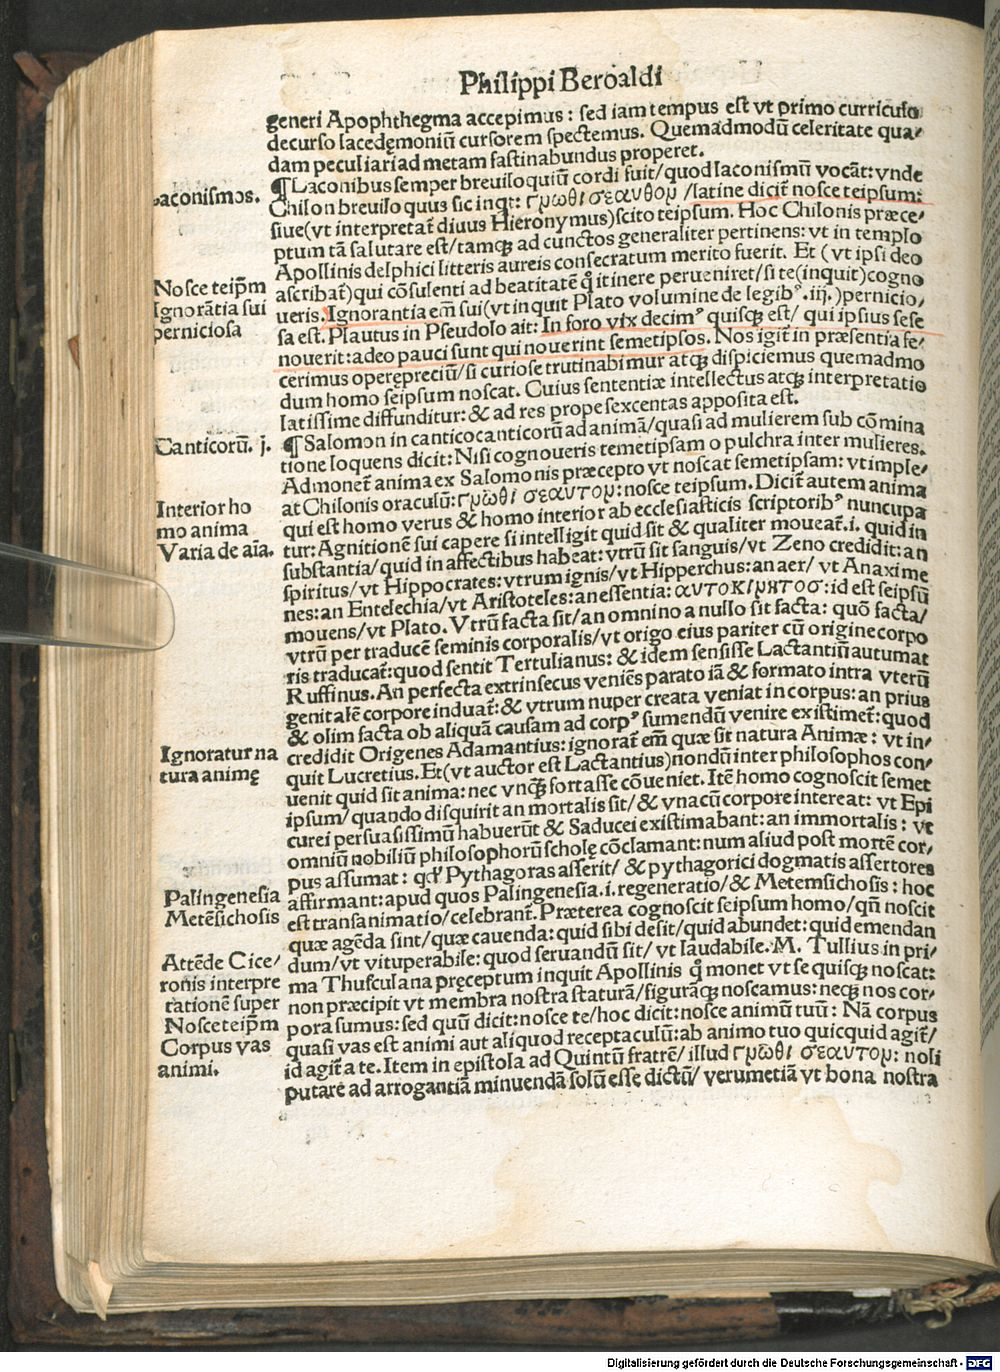 Philippi Beroaldi
generi Apophthegma accepimus : sed iam tempus est vt primo curriculo
decurso lacedęmoniũ cursorem spectemus. Quemadmodũ celeritate qua/
dam peculiari ad metam fastinabundus properet.
¶ Laconibus semper breuiloquiũ cordi fuit/ quod laconismũ vocãt: vnde
Laconismos.
Chilon breuiloquus sic inqt: γμωθι σεαυθομ /latine dicit̃ nosce teipsum:
siue(vt interpretat̃ diuus Hieronymus)scito teipsum. Hoc Chilonis præce/
ptum tã salutare est/ tamqꝫ ad cunctos generaliter pertinens: vt in templo
Apollinis delphici litteris aureis consecratum merito fuerit. Et ( vt ipsi deo
Nosce teip̃m
ascribat̃)qui cõsulenti ad beatitatẽ q̃ itinere perueniret/ si te(inquit)cogno
Ignorãtia sui
ueris. Ignorantia em̃ sui(vt inquit Plato volumine de legibꝰ .iij.)pernicio/
perniciosa
sa est. Plautus in Pseudolo ait: In foro vix decimꝰ quisqꝫ est/ qui ipsius sese
nouerit: adeo pauci sunt qui nouerint semetipsos. Nos igit̃ in præsentia fe/
cerimus operępreciũ/ si curiose trutinabimur atqꝫ dispiciemus quemadmo
dum homo seipsum noscat. Cuius sententiæ intellectus atqꝫ interpretatio
latissime diffunditur: & ad res prope sexcentas apposita est.
Canticorũ. j.
¶ Salomon in cantico canticorũ ad animã/ quasi ad mulierem sub cõmina
tione loquens dicit: Nisi cognoueris temetipsam o pulchra inter mulieres.
Admonet̃ anima ex Salomonis præcepto vt noscat semetipsam: vt imple/
Interior ho
at Chilonis oraculũ: γμωθι σεαυτομ: nosce teipsum. Dicit̃ autem anima
mo anima
qui est homo verus & homo interior ab ecclesiasticis scriptoribꝰ nuncupa
Varia de aĩa.
tur: Agnitionẽ sui capere si intelligit quid sit & qualiter moueat̃. i. quid in
substantia/ quid in affectibus habeat: vtrũ sit sanguis/ vt Zeno credidit: an
spiritus/ vt Hippocrates: vtrum ignis/ vt Hipperchus: an aer/ vt Anaxime
nes: an Entelechia/ vt Aristoteles: an essentia: αυτοκιμητοσ: id est seipsũ
mouens/ vt Plato. Vtrũ facta sit/ an omnino a nullo sit facta: quõ facta/
vtrũ per traducẽ seminis corporalis/ vt origo eius pariter cũ origine corpo
ris traducat̃: quod sentit Tertulianus: & idem sensisse Lactantiũ autumat
Ruffinus. An perfecta extrinsecus veniẽs parato iã & formato intra vterũ
genitalẽ corpore induat̃: & vtrum nuper creata veniat in corpus: an prius
& olim facta ob aliquã causam ad corpꝰ sumendũ venire existimet̃: quod
Ignoratur na
credidit Origenes Adamantius: ignorat̃ em̃ quæ sit natura Animæ : vt in/
tura animę
quit Lucretius. Et(vt auctor est Lactantius) nondũ inter philosophos con/
uenit quid sit anima: nec vnqꝫ fortasse cõueniet. Itẽ homo cognoscit semet
ipsum/ quando disquirit an mortalis sit/ & vnacũ corpore intereat: vt Epi
curei persuasissimũ habuerũt & Saducei existimabant: an immortalis : vt
omniũ nobiliũ philosophorũ scholę cõclamant: num aliud post mortẽ cor/
pus assumat : qđ Pythagoras asserit/ & pythagorici dogmatis assertores
Palingenesia
affirmant: apud quos Palingenesia. i. regeneratio/ & Metemsichosis : hoc
Metẽsichosis
est transanimatio/ celebrant̃. Præterea cognoscit seipsum homo/ qñ noscit
quæ agẽda sint/ quæ cauenda: quid sibi desit/ quid abundet: quid emendan
Attẽde Cice/
dum/ vt vituperabile: quod seruandũ sit/ vt laudabile. M. Tullius in pri/
ronis interpre
ma Thusculana pręceptum inquit Apollinis q̃ monet vt se quisqꝫ noscat:
tationẽ super
non præcipit vt membra nostra staturã/ figurãqꝫ noscamus: neqꝫ nos cor/
Nosce teip̃m
pora sumus: sed quũ dicit: nosce te/ hoc dicit: nosce animũ tuũ: Nã corpus
Corpus vas
quasi vas est animi aut aliquod receptaculũ: ab animo tuo quicquid agit̃/
animi.
id agit̃ a te. Item in epistola ad Quintũ fratrẽ/ illud γμωθι σεαυτομ: noli
putare ad arrogantiã minuendã solũ esse dictũ/ verumetiã vt bona nostra
Digitalisierung gefördert durch die Deutsche Forschungsgemeinschaft - DFG